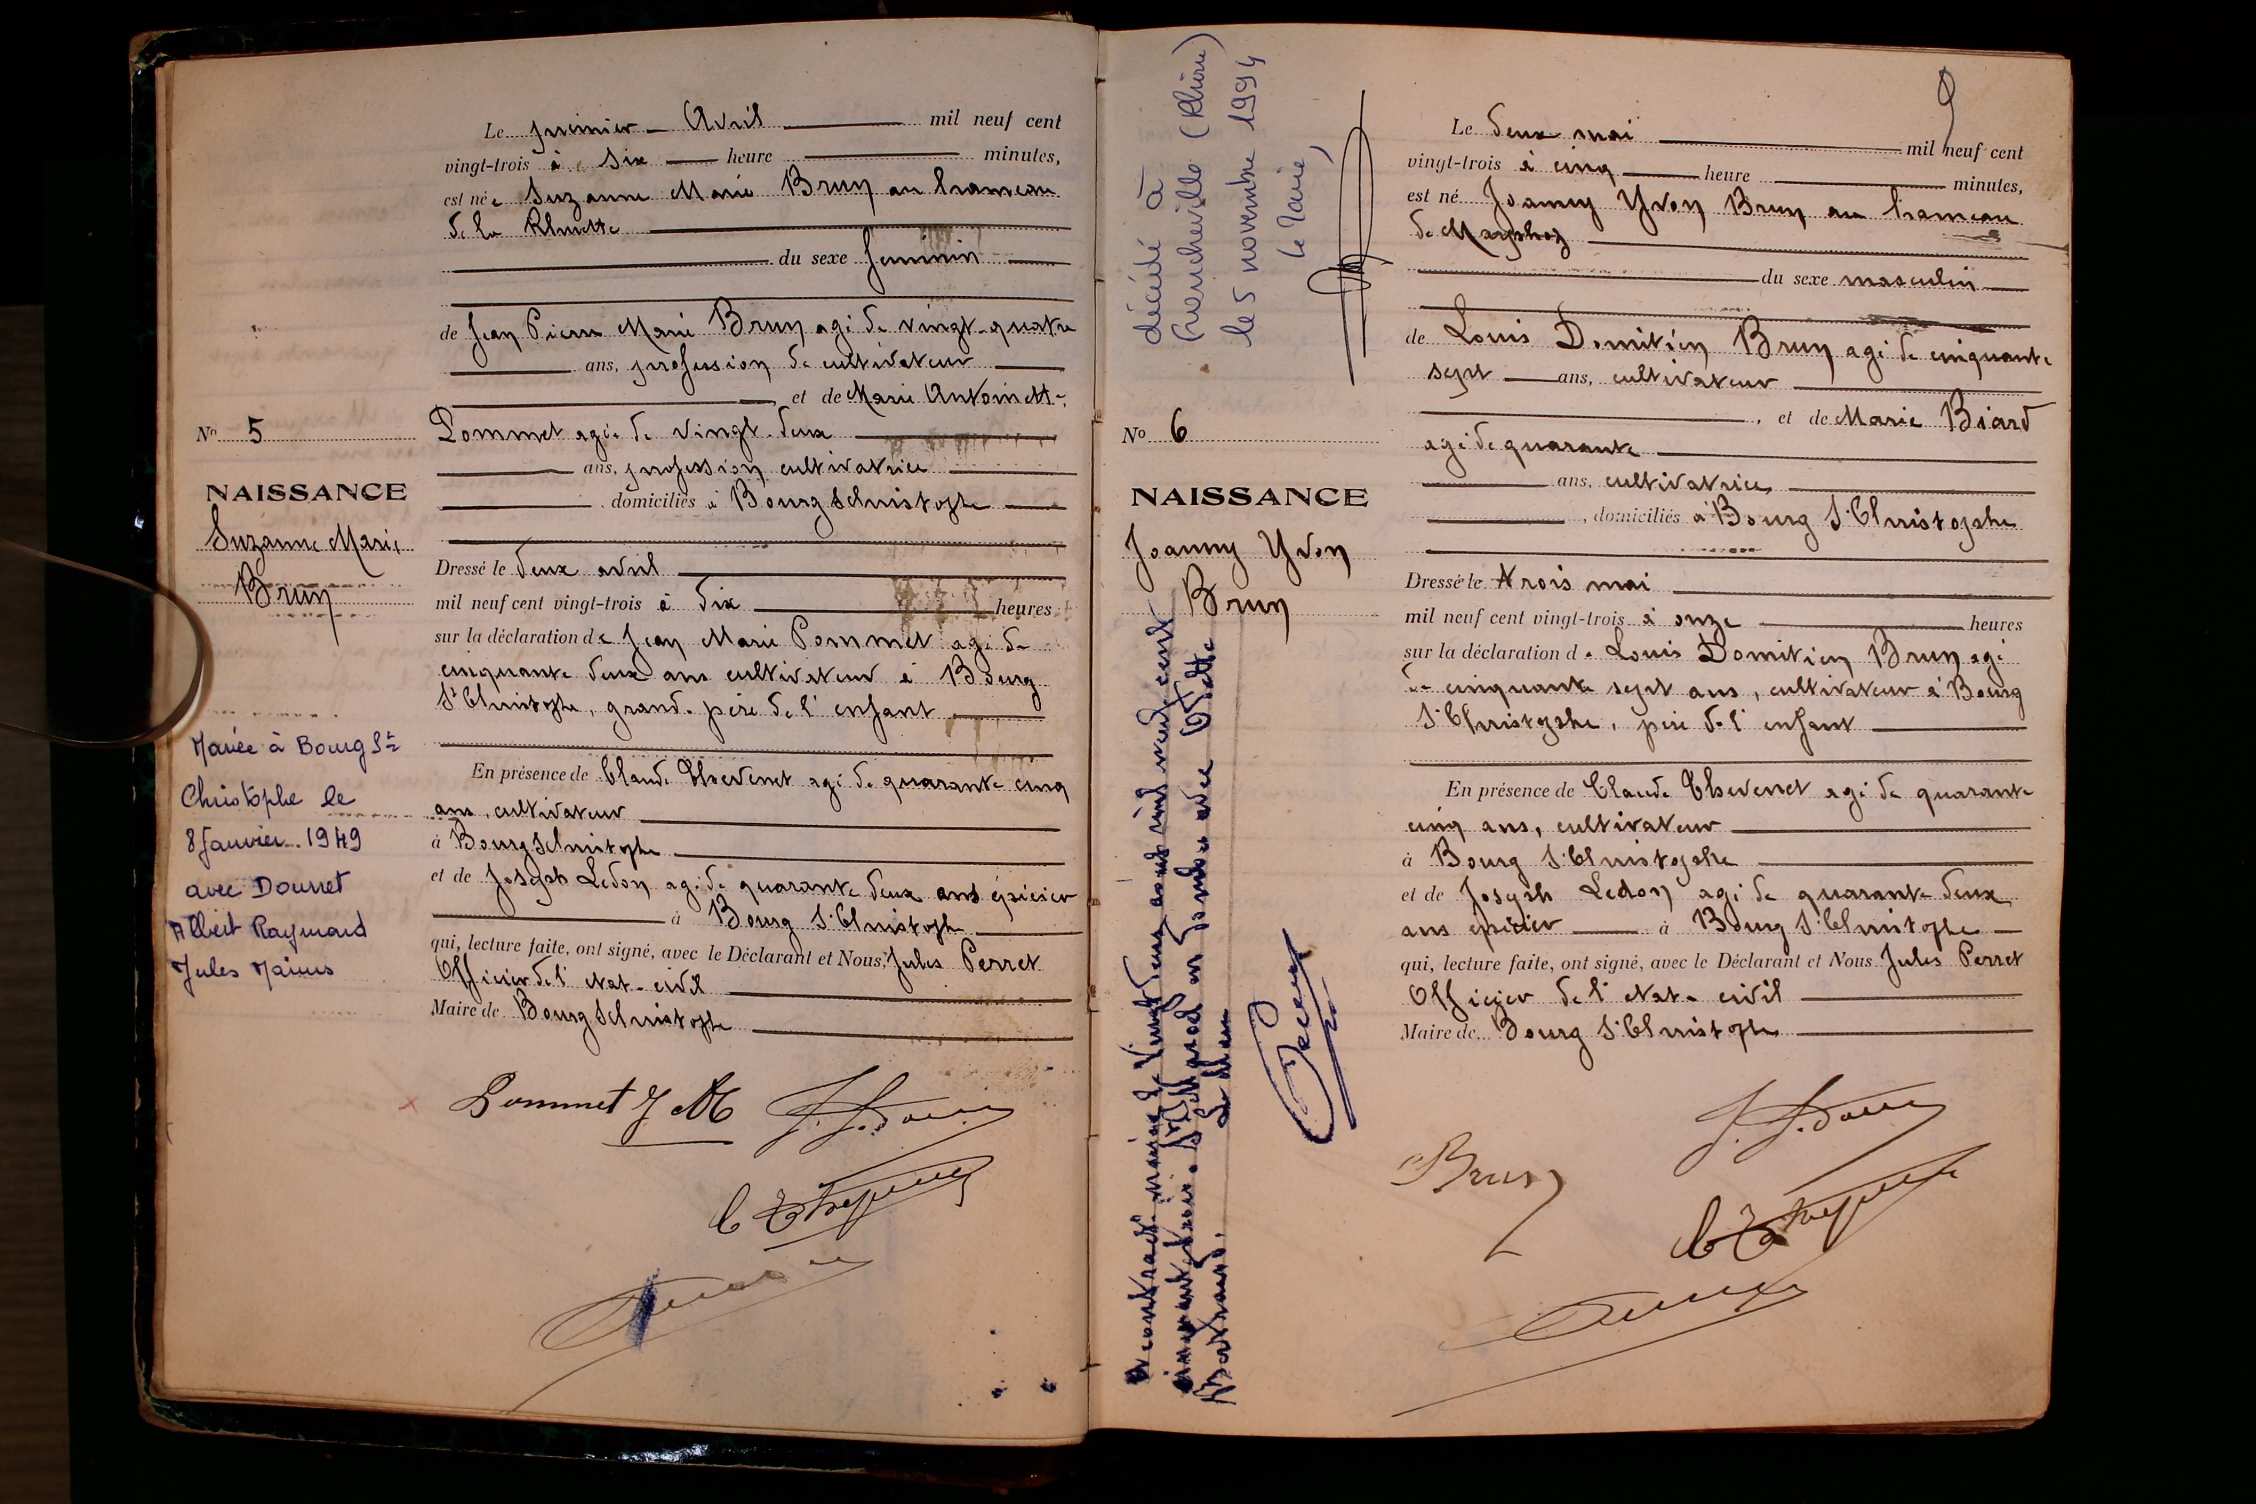 Le premier Avril mil neuf cent
vingt-trois à six heure minutes,
est née Suzanne Marie Brun au hameau
de la
du sexe féminin
de Jean Pierre Marie Brun agé de vingt-quatre
ans, profession de cultivateur
et de Marie Antoinette
Pommet agée de vingt-deux
ans, profession cultivatrice
domiciliés à Bourg St Christophe
Dressé le deux avril
mil neuf cent vingt-trois à dix heures
sur la déclaration de Jean Marie Pommet agé de
cinquante deux ans cultivateur à Bourg
St Christophe, grand-père de l'enfant
En présence de Claude Thevenet agé de quarante cinq
ans, cultivateur
à Bourg St Christophe
et de Joseph Ledon agé de quarante deux ans épicier
à Bourg St Christophe
qui, lecture faite, ont signé, avec le Déclarant et Nous, Jules Perret
Officier de l'état-civil
Maire de Bourg St Christophe
No 5
NAISSANCE
Suzanne Marie
Brun
Mariée à Bourg St
Christophe le
8 Janvier 1949
avec
Albert Raymond
Jules Marius
Pommet J M
9
Le deux mai mil neuf cent
vingt-trois à cinq heure minutes,
est né Joanny Yvon Brun au hameau
de
du sexe masculin
de Louis Domitien Brun agé de cinquante
sept ans, cultivateur
, et de Marie Biard
agé de quarante
ans, cultivatrice
, domiciliés à Bourg St Christophe
Dressé le trois mai
mil neuf cent vingt-trois à onze heures
sur la déclaration de Louis Domitien Brun agé
de cinquante sept ans, cultivateur à Bourg
St Christophe, père de l'enfant
En présence de Claude Thevenet agé de quarante
cinq ans, cultivateur
à Bourg St Christophe
et de Joseph Ledon agé de quarante deux
ans épicier à Bourg St Christophe
qui, lecture faite, ont signé, avec le Déclarant et Nous Jules Perret
Officier de l'état-civil
Maire de Bourg St Christophe
No 6
NAISSANCE
Joanny Yvon
Brun
décédé à
(Rhône)
le 5 novembre 1994
le Maire,
A contracté mariage le Vingt deux août mil neuf cent
cinquante trois à avec Odette
Le Maire
Brun